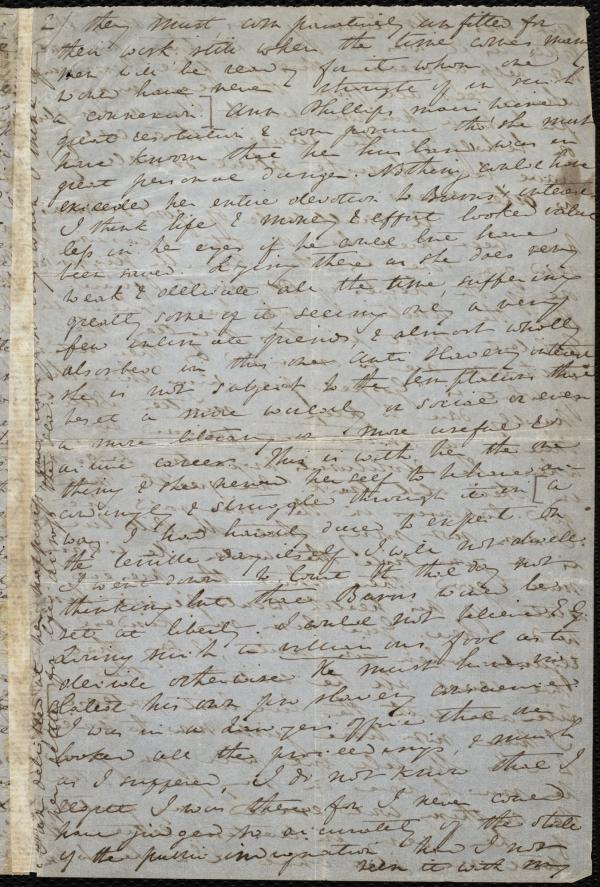 2) they must com paratively unfitted for
their work still when the time comes many
men will be ready for it whom one
would have never thought of in such
a connexion] Ann Phillips maintained
great resolution & composure tho' she must
have known that her husband was in
great personal danger. Nothing could have
exceeded her entire devotion to Burns' interest
I think life & money & effort looked value
less in her eyes if he could but have
been saved. Lying there as she does very
weak & delicate all the time suffering
greatly some of it seeing only a very
few intimate friends & almost wholly
absorbed in this one Anti Slavery interest
she is not subject to the temptations that
beset a more worldly or social or even
a more literary or more useful &
active career. This is with her the one
thing & she nerved herself to
& struggle through it in [a
way I had hardly dared to expect. On
the terrible day itself I will not dwell.
I went down to Court St that day not
thinking but that Burns would be
set at liberty. I could not believe E G
Loring such a fool as to
decide otherwise. He must have
his own pro slavery
I was in a Lawyer's office that over
looked all the proceedings, & much
as I suffered, I do not know that I
regret I was there for I never could
have judged so accurately of the state
of the public indignation had I not
seen it with my